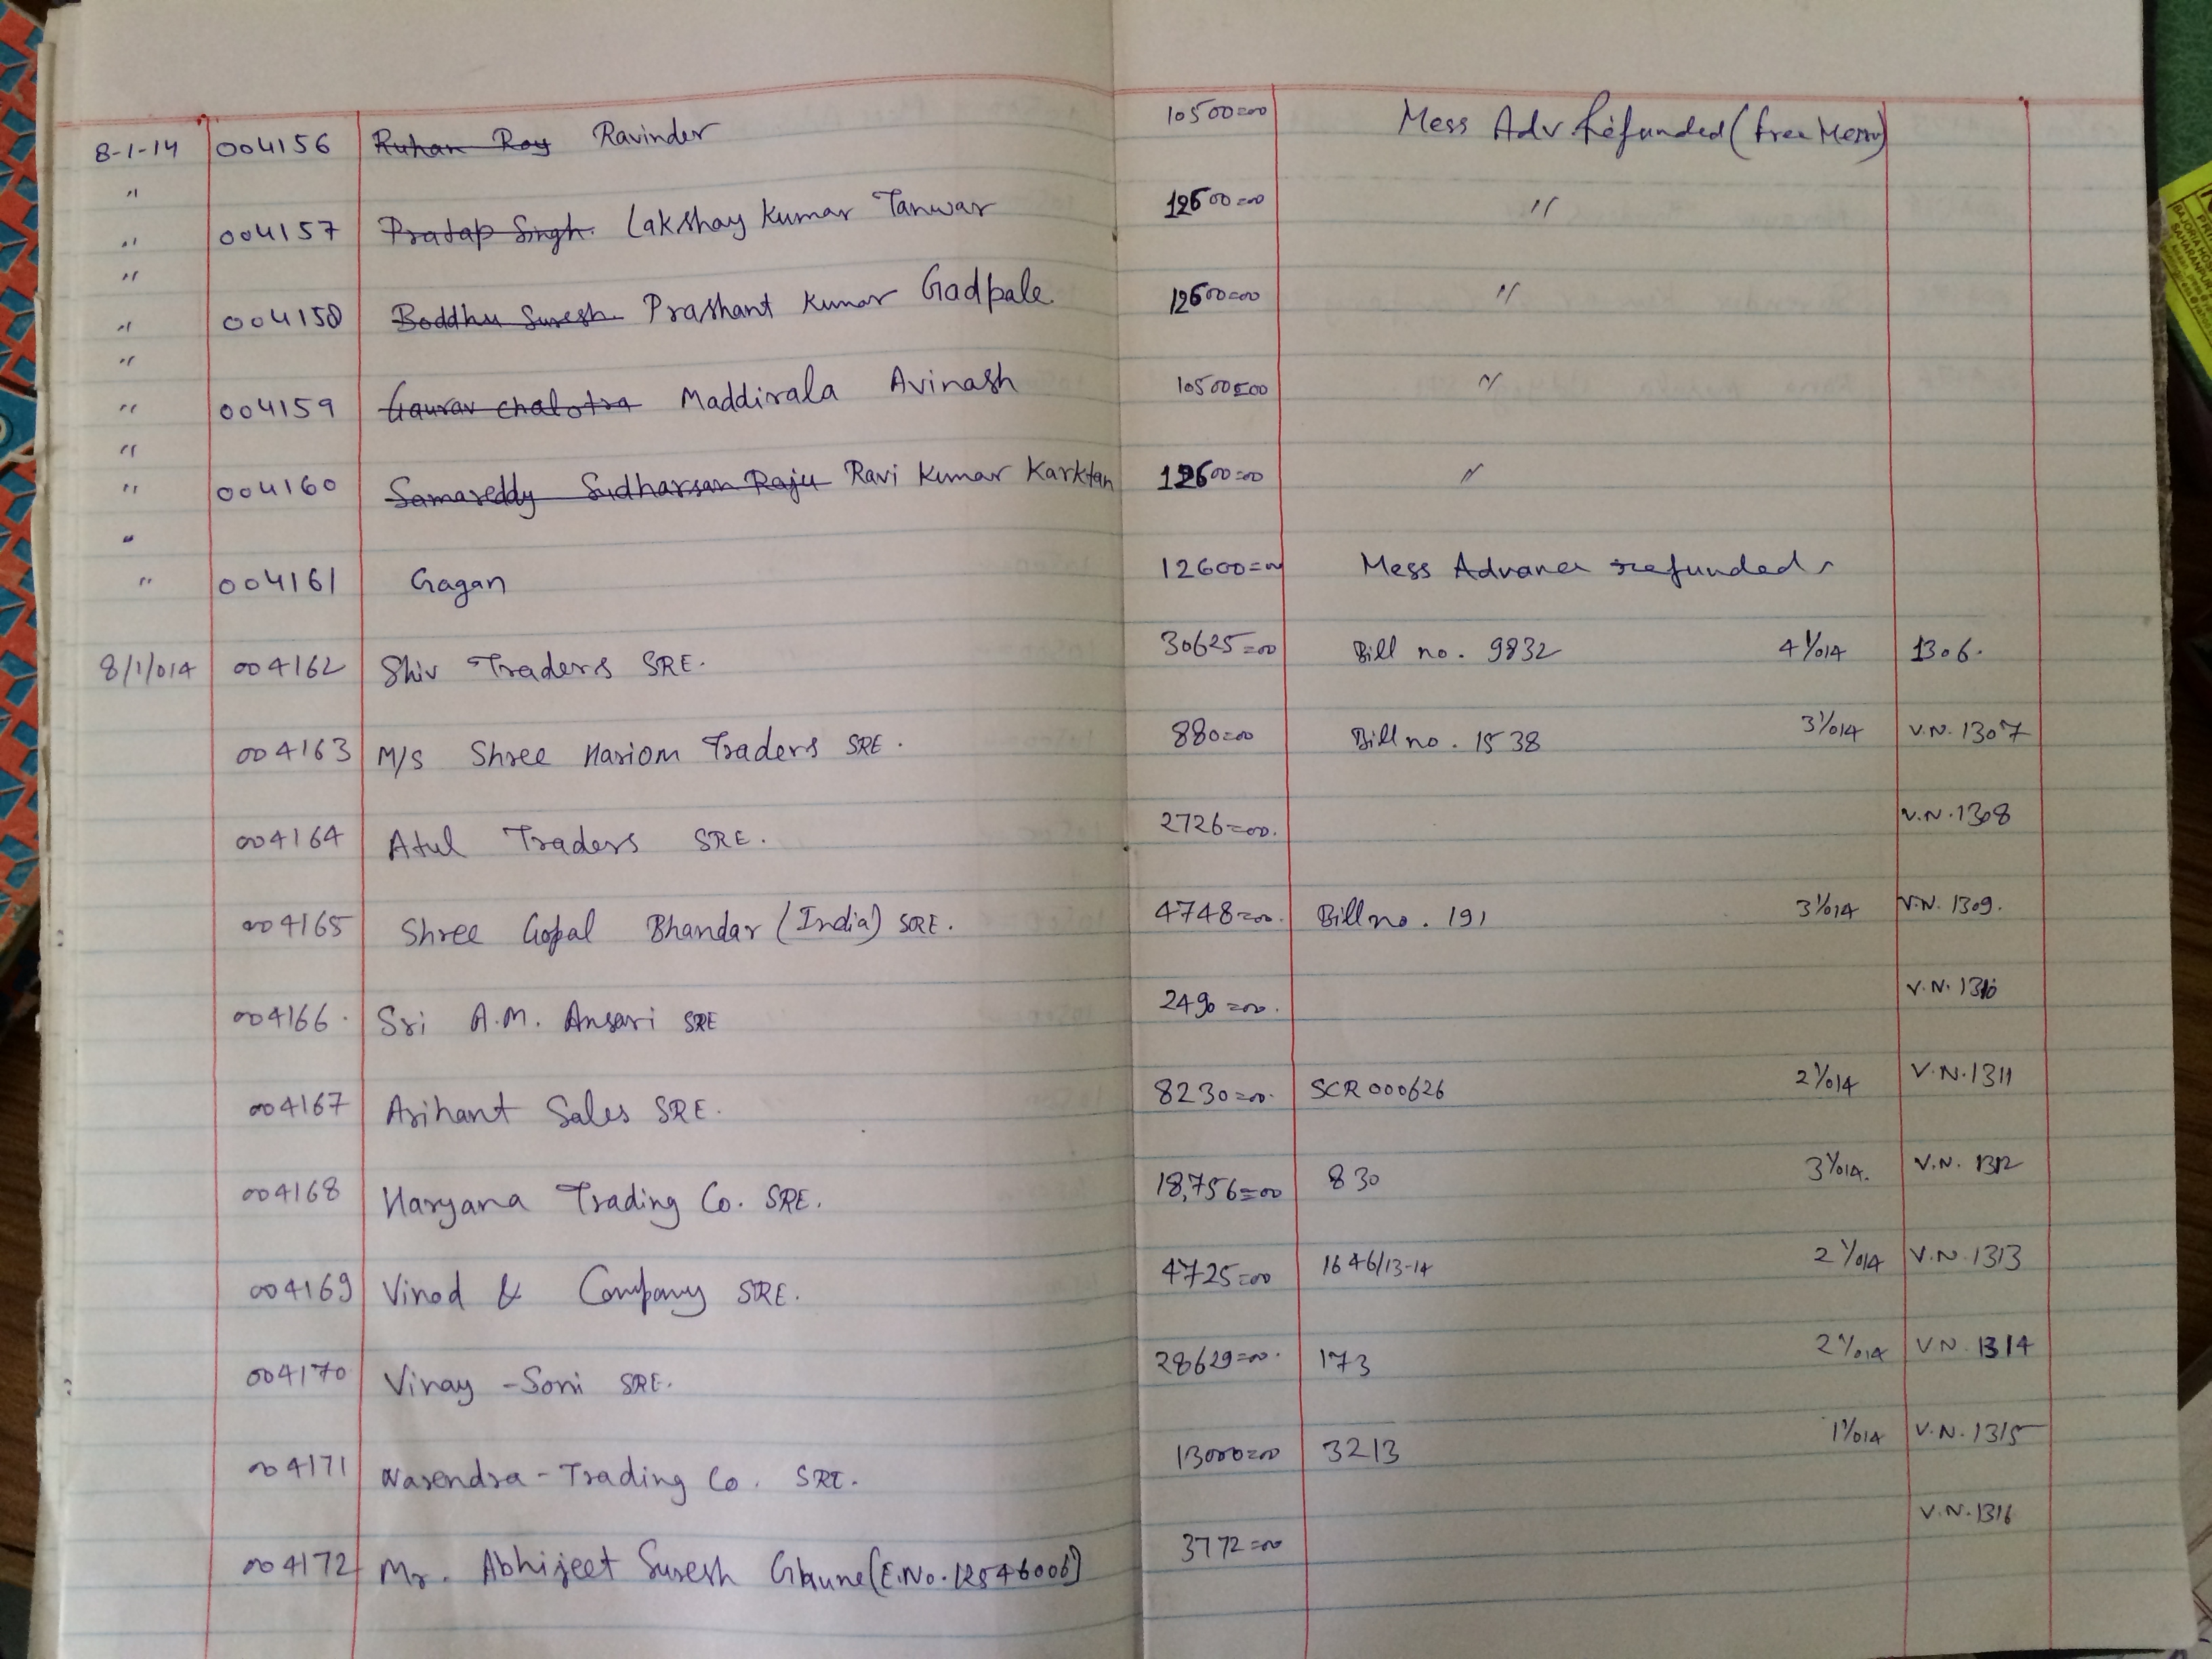 8-1-14 004156 Ruhan Roy Ravinder 10500=00 Mess Adv. Refunded (Free Mem)
" 
" 004157 Pratap Singh Lakshay Kumar Tanwar 12600=00 "
"
" 004158 Boddhu Suresh Prashant Kumar Gadpale 12600=00 "
"
" 004159 Gaurav Chalotra Maddirala Avinash 10500=00 "
"
" 004160 Samareddy Sudharsan Raju Ravi Kumar 12600=00 "
"
" 004161 Gagan 12600=00 Mess Advance refunded
8/1/014 004162 Shiv Traders SRE. 30625=00 Bill no. 9832 4/1/014 1306.
004163 M/S Shree Hariom Traders SRE. 880=00 Bill no. 1538 3/1/014 V.N. 1307
004164 Atul Traders SRE. 2726=00. V.N. 1308
004165 Shree Gopal Bhandar (India) SRE. 4748=00. Bill no. 191 3/1/014 V.N. 1309.
004166. Sri A.M. Ansari SRE 2490=00. V.N. 1310
004167 Arihant Sales SRE. 8230=00. SCR000626 2/1/014 V.N. 1311
004168 Haryana Trading Co. SRE. 18,756=00 830 3/1/014. V.N. 1312
004169 Vinod & Company SRE. 4725=00 1646/13-14 2/1/014 V.N. 1313
004170 Vinay - Soni SRE. 28629=00. 173 2/1/014 V.N. 1314
004171 Narendra - Trading Co. SRE. 13000=00 3213 1/1/014 V.N. 1315
004172 Mr. Abhijeet Suresh (E.No. 12546006) 3772=00 V.N. 1316